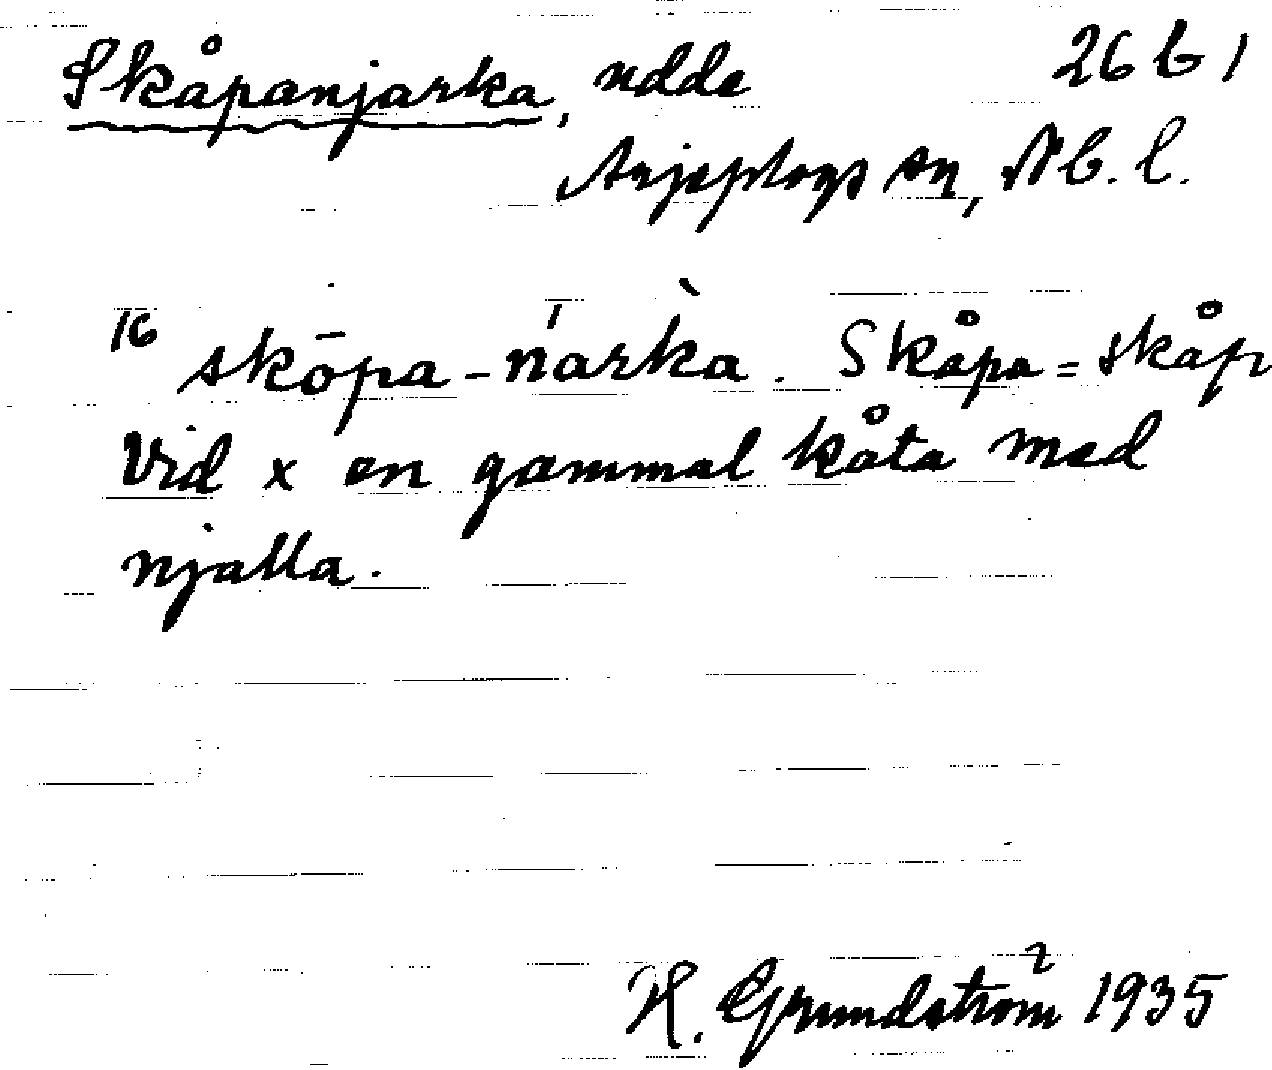 Skåpanjarka, udde 26 b 1
Arjeplogs sn, Nb. l.
16 skōpa-ńarkà. Skåpa = skåp
Vid x en gammal kåta med
njalla.
H. Grundström 1935